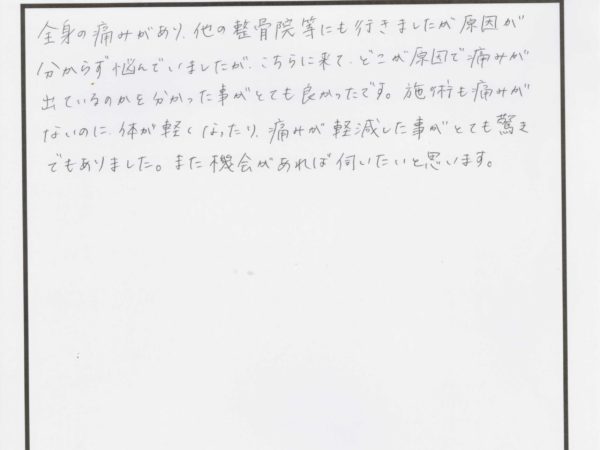 全身の痛みがあり、他の整骨院等にも行きましたが原因が
分からず悩んでいましたが、こちらに来て、どこが原因で痛みが
出ているのかを分かった事がとても良かったです。施術も痛みが
ないのに、体が軽くなったり、痛みが軽減した事がとても驚き
でもありました。また機会があれば伺いたいと思います。